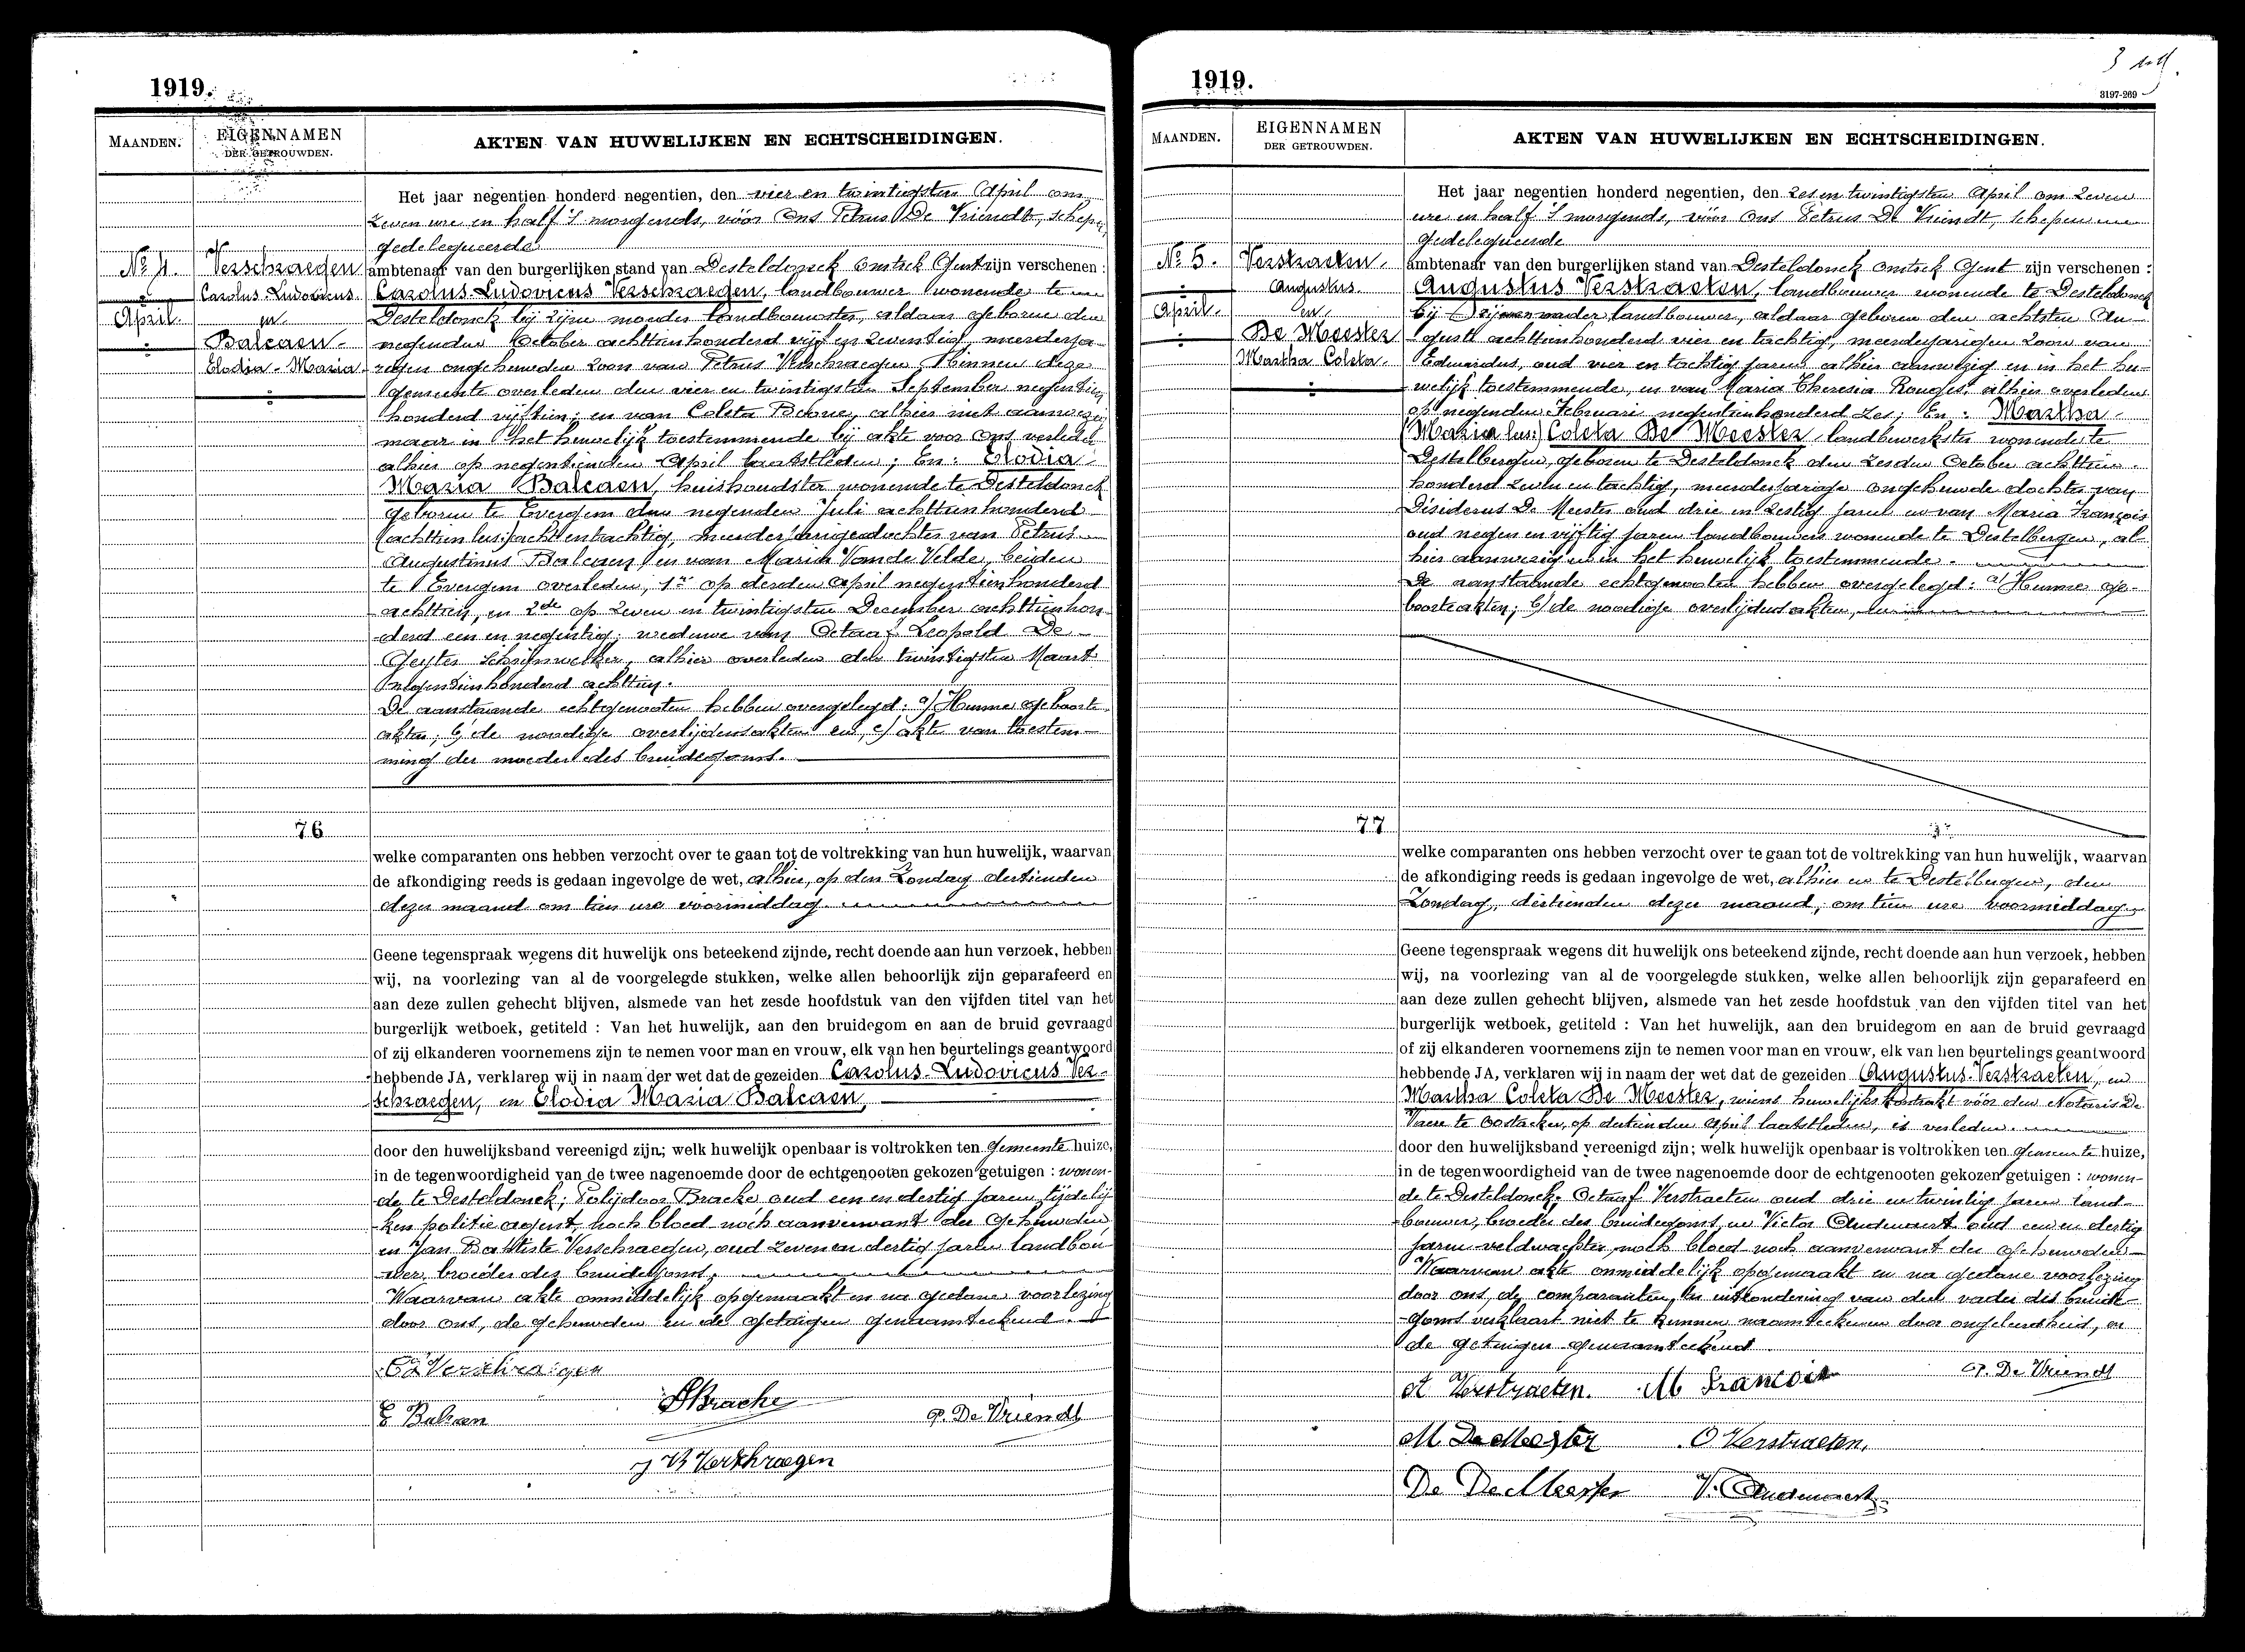 1919.
MAANDEN.
EIGENNAMEN
DER GETROUWDEN.
AKTEN VAN HUWELIJKEN EN ECHTSCHEIDINGEN.
Het jaar negentien honderd negentien, den vier en twintigsten April om
zeven ure en half 's morgends, vóór Ons Petrus De Vriendt, schepen
gedelegueerde
ambtenaar van den burgerlijken stand van Desteldonck Omtrek Gent zijn verschenen :
Carolus-Ludovicus Verschraegen, landbouwer wonende te
Desteldonck bij zijne moeder landbouwster, aldaar geboren den
negenden October achttienhonderd vijf en zeventig, meerderja-
rigen ongehuwden zoon van Petrus Verschraegen, binnen deze
gemeente overleden den vier en twintigsten September negentien
honderd vijftien; en van Coleta, alhier niet aanwezig
maar in het huwelijk toestemmende bij akte voor Ons verleden
alhier op negentienden April laatstleden; En: Elodia
Maria Balcaen, huishoudster wonende te Desteldonck
geboren te Evergem den negenden Juli achttienhonderd
(achttien lus:) acht en tachtig, meerderjarige dochter van Petrus
Augustinus Balcaen, en van Maria Van de Velde, beiden
te Evergem overleden, 1e op derden April negentienhonderd
achttien, en 2de op zeven en twintigsten December achttienhon-
derd een en negentig; weduwe van Octaaf Leopold De
Geyter schrijnwerker, alhier overleden den twintigsten Maart
negentienhonderd achttien.
De aanstaande echtgenooten hebben overgelegd: a/ Hunne geboorte-
akten; b/ de noodige overlijdensakten en, c/ akte van toestem-
ming der moeder des bruidegoms.
No 4.
April.
Verschraegen
Carolus-Ludovicus
en
Balcaen
Elodia-Maria
76
welke comparanten ons hebben verzocht over te gaan tot de voltrekking van hun huwelijk, waarvan
de afkondiging reeds is gedaan ingevolge de wet, alhier, op den Zondag dertienden
dezer maand om tien ure voormiddag
Geene tegenspraak wegens dit huwelijk ons beteekend zijnde, recht doende aan hun verzoek, hebben
wij, na voorlezing van al de voorgelegde stukken, welke allen behoorlijk zijn geparafeerd en
aan deze zullen gehecht blijven, alsmede van het zesde hoofdstuk van den vijfden titel van het
burgerlijk wetboek, getiteld : Van het huwelijk, aan den bruidegom en aan de bruid gevraagd
of zij elkanderen voornemens zijn te nemen voor man en vrouw, elk van hen beurtelings geantwoord
hebbende JA, verklaren wij in naam der wet dat de gezeiden Carolus-Ludovicus Ver-
schraegen, en Elodia Maria Balcaen,
door den huwelijksband vereenigd zijn; welk huwelijk openbaar is voltrokken ten Gemeente huize,
in de tegenwoordigheid van de twee nagenoemde door de echtgenooten gekozen getuigen : wonen-
de te Desteldonck; Polijdoor Bracke, oud een en dertig jaren, tijdelij-
ken politie agent, noch bloed- noch aanverwant der gehuwden
en Jan Baptiste Verschraegen, oud zeven en dertig jaren landbou-
wer, broeder des bruidegoms.
Waarvan akte onmiddelijk opgemaakt en na gedane voorlezing
door ons, de gehuwden en de getuigen genaamteekend.
Verschraegen
E Balcaen
Bracke
P. De Vriendt
J B Verschraegen
1919.
3197-269
MAANDEN.
EIGENNAMEN
DER GETROUWDEN.
AKTEN VAN HUWELIJKEN EN ECHTSCHEIDINGEN.
Het jaar negentien honderd negentien, den zes en twintigsten April om zeven
ure en half 's morgends, vóór Ons Petrus De Vriendt, schepen
gedelegueerde
ambtenaar van den burgerlijken stand van Desteldonck Omtrek Gent zijn verschenen :
Augustus Verstraeten, landbouwer wonende te Desteldonck
bij zijnen vader landbouwer, aldaar geboren den achtsten Au-
gusti achttienhonderd vier en tachtig, meerderjarigen zoon van
Eduardus, oud vier en tachtig jaren alhier aanwezig en in het hu-
welijk toestemmende, en van Maria Theresia Rougés, alhier overleden
op negenden Februari negentienhonderd zes; En: Martha
(Maria lus:) Coleta De Meester, landbewerkster wonende te
Destelbergen, geboren te Desteldonck den zesden October achttien-
honderd zeven en tachtig, meerderjarige ongehuwde dochter van
Disiderus De Meester oud drie en zestig jaren en van Maria François
oud negen en vijftig jaren landbouwers wonende te Destelbergen, al-
hier aanwezig en in het huwelijk toestemmende.
De aanstaande echtgenooten hebben overgelegd: a/ Hunne ge-
boorteakten; b/ de noodige overlijdensakten, en
No 5.
April.
Verstraeten.
Augustus.
en
De Meester
Martha Coleta.
77
welke comparanten ons hebben verzocht over te gaan tot de voltrekking van hun huwelijk, waarvan
de afkondiging reeds is gedaan ingevolge de wet, alhier en te Destelbergen, den
Zondag, dertienden dezer maand, om tien ure voormiddag
Geene tegenspraak wegens dit huwelijk ons beteekend zijnde, recht doende aan hun verzoek, hebben
wij, na voorlezing van al de voorgelegde stukken, welke allen behoorlijk zijn geparafeerd en
aan deze zullen gehecht blijven, alsmede van het zesde hoofdstuk van den vijfden titel van het
burgerlijk wetboek, getiteld : Van het huwelijk, aan den bruidegom en aan de bruid gevraagd
of zij elkanderen voornemens zijn te nemen voor man en vrouw, elk van hen beurtelings geantwoord
hebbende JA, verklaren wij in naam der wet dat de gezeiden Augustus-Verstraeten, en
Martha Coleta De Meester, wiens huwelijkskontrakt vóór den Notaris De
te Oostacker, op dertienden April laatstleden, is verleden.
door den huwelijksband vereenigd zijn; welk huwelijk openbaar is voltrokken ten Gemeente huize,
in de tegenwoordigheid van de twee nagenoemde door de echtgenooten gekozen getuigen : wonen-
de te Desteldonck. Octaaf Verstraeten oud drie en twintig jaren land-
bouwer, broeder des bruidegoms, en Victor Audenaert oud een en dertig
jaren veldwachter, noch bloed- noch aanverwant der gehuwden
Waarvan akte onmiddelijk opgemaakt en na gedane voorlezing
door ons, de comparanten, ter uitzondering van den vader des bruide-
goms verklaart niet te kunnen naamteekenen door ongeleerdheid, en
de getuigen genaamteekend
A Verstraeten. M Francois P. De Vriendt
M De Meester O Verstraeten.
De De Meester V. Audenaert